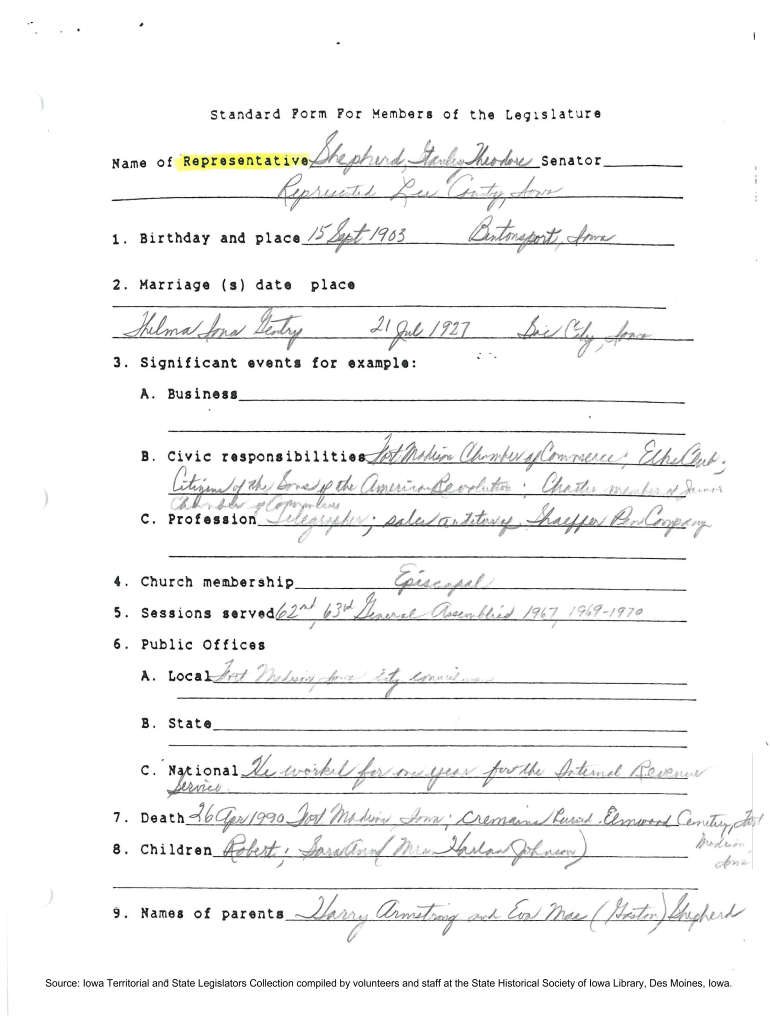 Standard Form For Members of the Legislature
Name of Representative Shepherd, Stanley Theodore Senator
Represented Lee County, Iowa
1. Birthday and place 15 Sept 1903 Bentonsport, Iowa
2. Marriage (s) date place
Thelma Iona Gentry 21 Jul 1927 Sac City, Iowa
3. Significant events for example:
A. Business
B. Civic responsibilities Fort Madison Chamber of Commerce; Elks Club;
Citizens of the Sons of the American Revolution; Charter member of Junior
Chamber of
C. Profession Telegrapher; sales Shaeffer Pen Company
4. Church membership Episcopal
5. Sessions served 62nd, 63rd General Assemblies 1967, 1969-1970
6. Public Offices
A. Local Fort Madison, Iowa city councilman
B. State
C. National He worked for one year for the Internal Revenue
Service
7. Death 26 Apr 1990 Fort Madison, Iowa; cremains buried Elmwood Cemetery, Fort
Madison,
Iowa
8. Children Robert; Sara Ann (Mrs. Harlan Johnson)
9. Names of parents Harry Armstrong and Eva Mae (Gaston) Shepherd
Source: Iowa Territorial and State Legislators Collection compiled by volunteers and staff at the State Historical Society of Iowa Library, Des Moines, Iowa.